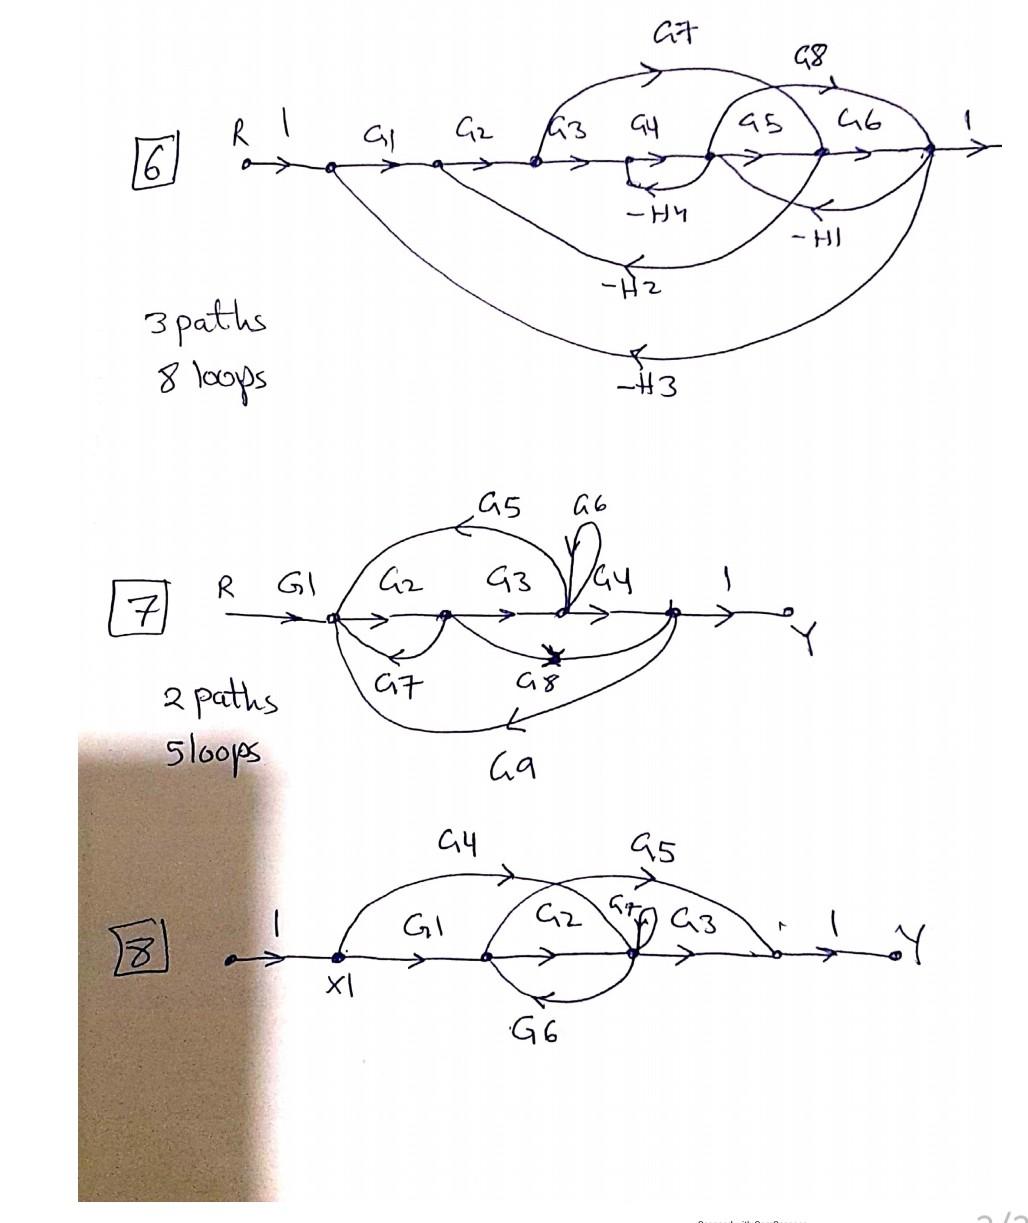 G7
G8
R 1 G1 G2 G3 G4 G5 G6 1
6
-H4
-H1
-H2
3 paths
8 loops
-H3
G5 G6
R G1 G2 G3 G4 1
7
Y
G7 G8
2 paths
5 loops
G9
G4 G5
1 G1 G2 G7 G3 1 Y
8
X1
G6